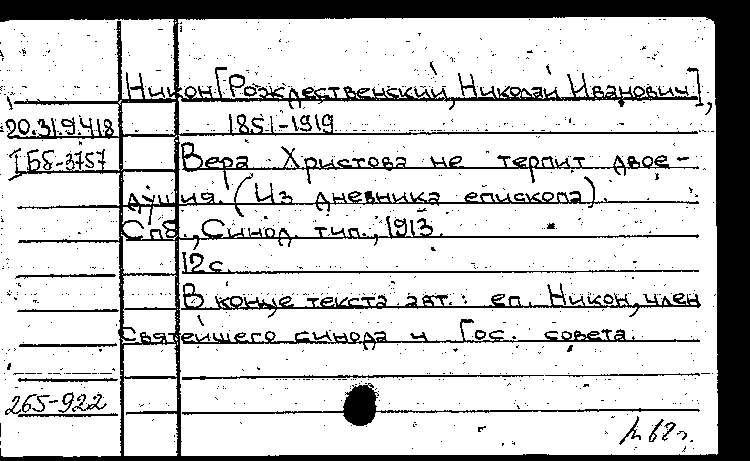 Никон [Рождественский, Николай Иванович],
20.31.9.418 1851-1919
Вера Христова не терпит двое-
душия. (Из дневника епископа).
Спб., Синод. тип., 1913.
12 с.
В конце текста авт.: еп. Никон, член
Святейшего синода и Гос. совета.
265-922